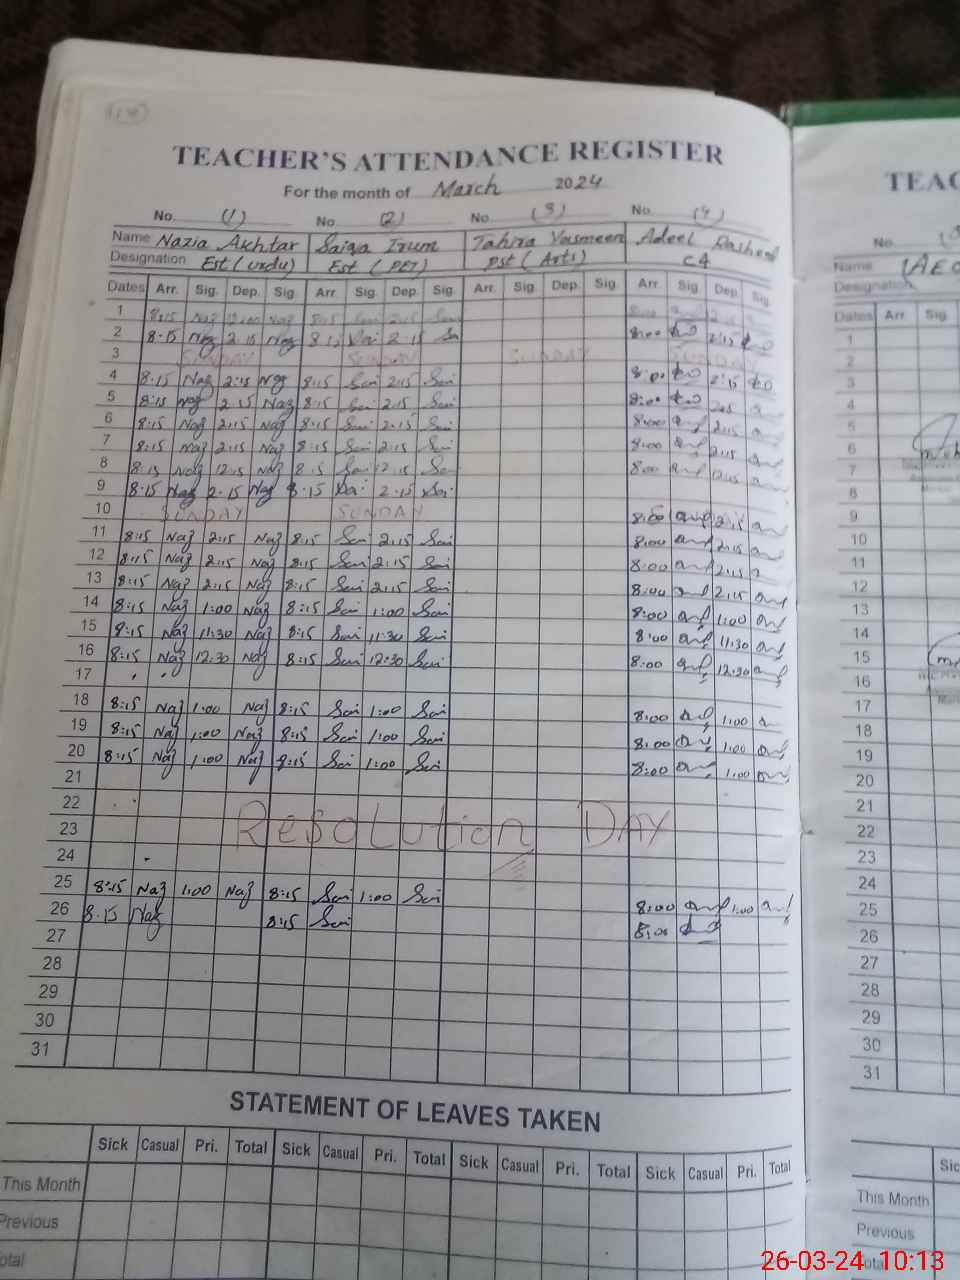 TEACHER'S ATTENDANCE REGISTER
For the month of March 2024
No. (1) No. (2) No. (3) No. (4)
Name Nazia Akhtar Saiqa Irum Tahira Yasmeen Adeel Rasheed
Designation Est (Urdu) Est (PET) Pst (Arts) C4
Dates Arr. Sig. Dep. Sig. Arr. Sig. Dep. Sig. Arr. Sig. Dep. Sig. Arr. Sig. Dep. Sig.
1 8:15 Naz 12:00 Naz 8:15 Sai 2:15 Sai
2 8-15 Naz 2-15 Naz 8:15 Sai 2 15 Sai 8:00 2:15
3 SUNDAY SUNDAY SUNDAY SUNDAY
4 8:15 Naz 2:15 Naz 8:15 Sai 2:15 Sai 8:00 2:15
5 8:15 Naz 2:15 Naz 8:15 Sai 2:15 Sai 8:00 2:15
6 8:15 Naz 2:15 Naz 8:15 Sai 2:15 Sai 8:00 2:15
7 8:15 Naz 2:15 Naz 8:15 Sai 2:15 Sai 8:00 2:15
8 8:15 Naz 12:15 Naz 8:15 Sai 12:15 Sai 8:00 12:15
9 8-15 Naz 2-15 Naz 8-15 Sai 2-15 Sai
10 SUNDAY SUNDAY 8:00 2:15
11 8:15 Naz 2:15 Naz 8:15 Sai 2:15 Sai 8:00 2:15
12 8:15 Naz 2:15 Naz 8:15 Sai 2:15 Sai 8:00 2:15
13 8:15 Naz 2:15 Naz 8:15 Sai 2:15 Sai 8:00 2:15
14 8:15 Naz 1:00 Naz 8:15 Sai 1:00 Sai 8:00 1:00
15 8:15 Naz 11:30 Naz 8:15 Sai 11:30 Sai 8:00 11:30
16 8:15 Naz 12:30 Naz 8:15 Sai 12:30 Sai 8:00 12:30
17
18 8:15 Naz 1:00 Naz 8:15 Sai 1:00 Sai 8:00 1:00
19 8:15 Naz 1:00 Naz 8:15 Sai 1:00 Sai 8:00 1:00
20 8:15 Naz 1:00 Naz 8:15 Sai 1:00 Sai 8:00 1:00
21
22
23 Resolution DAY
24
25 8:15 Naz 1:00 Naz 8:15 Sai 1:00 Sai 8:00 1:00
26 8-15 Naz 8:15 Sai 8:00
27
28
29
30
31
STATEMENT OF LEAVES TAKEN
Sick Casual Pri. Total Sick Casual Pri. Total Sick Casual Pri. Total Sick Casual Pri. Total
This Month
Previous
Total
TEAC
No.
Name
Designation
Dates Arr. Sig.
1
2
3
4
5
6
7
8
9
10
11
12
13
14
15
16
17
18
19
20
21
22
23
24
25
26
27
28
29
30
31
Sic
This Month
Previous
Total
26-03-24 10:13